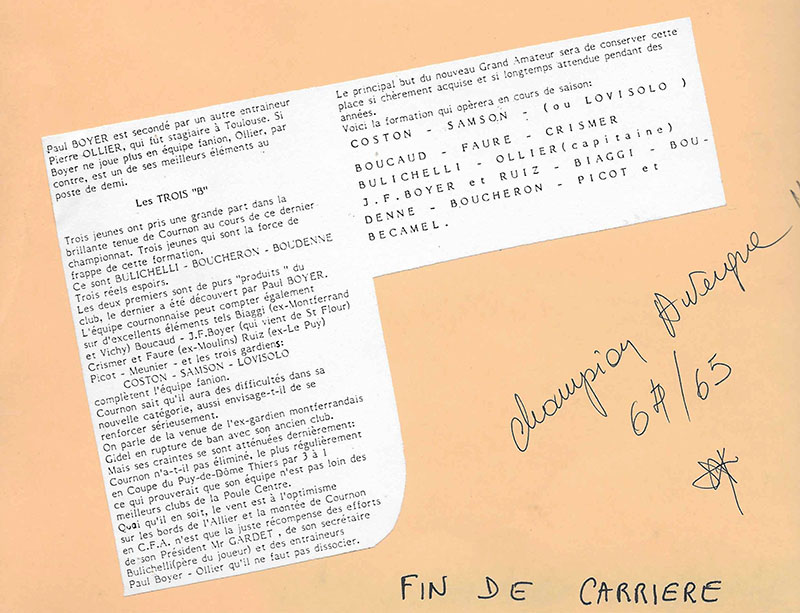 Paul BOYER est secondé par un autre entraineur
Pierre OLLIER, qui fût stagiaire à Toulouse. Si
Boyer ne joue plus en équipe fanion, Ollier, par
contre, est un de ses meilleurs éléments au
poste de demi.
Les TROIS "B"
Trois jeunes ont pris une grande part dans la
brillante tenue de Cournon au cours de ce dernier
championnat. Trois jeunes qui sont la force de
frappe de cette formation.
Ce sont BULICHELLI - BOUCHERON - BOUDENNE
Trois réels espoirs.
Les deux premiers sont de purs "produits " du
club, le dernier a été découvert par Paul BOYER.
L'équipe cournonnaise peut compter également
sur d'excellents éléments tels Biaggi (ex-Montferrand
et Vichy) Boucaud - J.F.Boyer (qui vient de St Flour)
Crismer et Faure (ex-Moulins) Ruiz (ex-Le Puy)
Picot - Meunier - et les trois gardiens:
COSTON - SAMSON - LOVISOLO
complètent l'équipe fanion.
Cournon sait qu'il aura des difficultés dans sa
nouvelle catégorie, aussi envisage-t-il de se
renforcer sérieusement.
On parle de la venue de l'ex-gardien montferrandais
Gidel en rupture de ban avec son ancien club.
Mais ses craintes se sont atténuées dernièrement:
Cournon n'a-t-il pas éliminé, le plus régulièrement
en Coupe du Puy-de-Dôme Thiers par 3 à 1
ce qui prouverait que son équipe n'est pas loin des
meilleurs clubs de la Poule Centre.
Quoi qu'il en soit, le vent est à l'optimisme
sur les bords de l'Allier et la montée de Cournon
en C.F.A. n'est que la juste récompense des efforts
de son Président Mr GARDET , de son secrétaire
Bulichelli(père du joueur) et des entraineurs
Paul Boyer - Ollier qu'il ne faut pas dissocier.
Le principal but du nouveau Grand Amateur sera de conserver cette
place si chèrement acquise et si longtemps attendue pendant des
années.
Voici la formation qui opèrera en cours de saison:
COSTON - SAMSON - (ou LOVISOLO )
BOUCAUD - FAURE - CRISMER
BULICHELLI - OLLIER(capitaine)
J.F.BOYER et RUIZ - BIAGGI - BOU-
DENNE - BOUCHERON - PICOT et
BECAMEL.
champion Auvergne
64/65
FIN DE CARRIERE